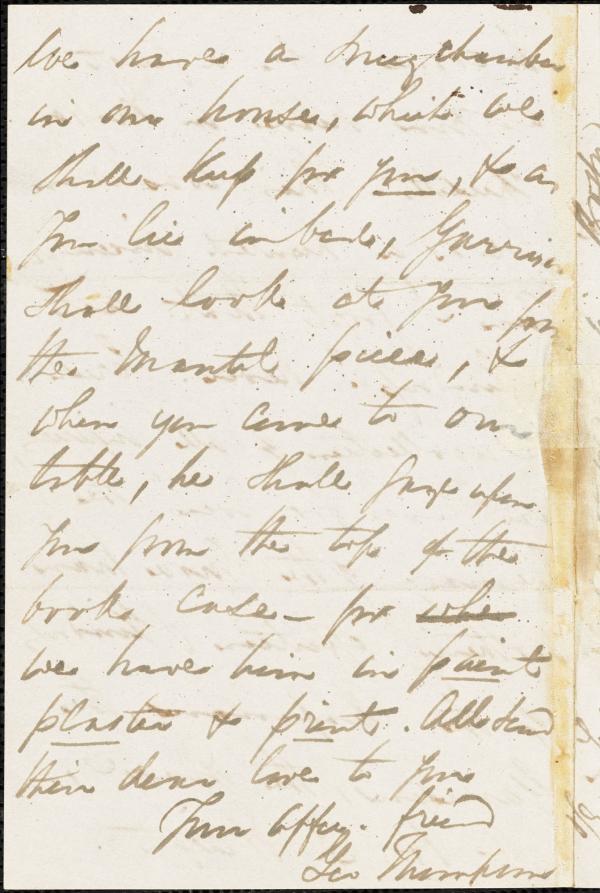 We have a snug chamber
in our house, which we
shall keep for you, & as
you lie in bed, Garrison
shall look at you from
the mantle piece, &
when you come to our
table, he shall gaze upon
you from the top of the
book case — for whe
we have him in paint
plaster & print. All send
their dear love to you
Your affec. friend
Geo Thompson